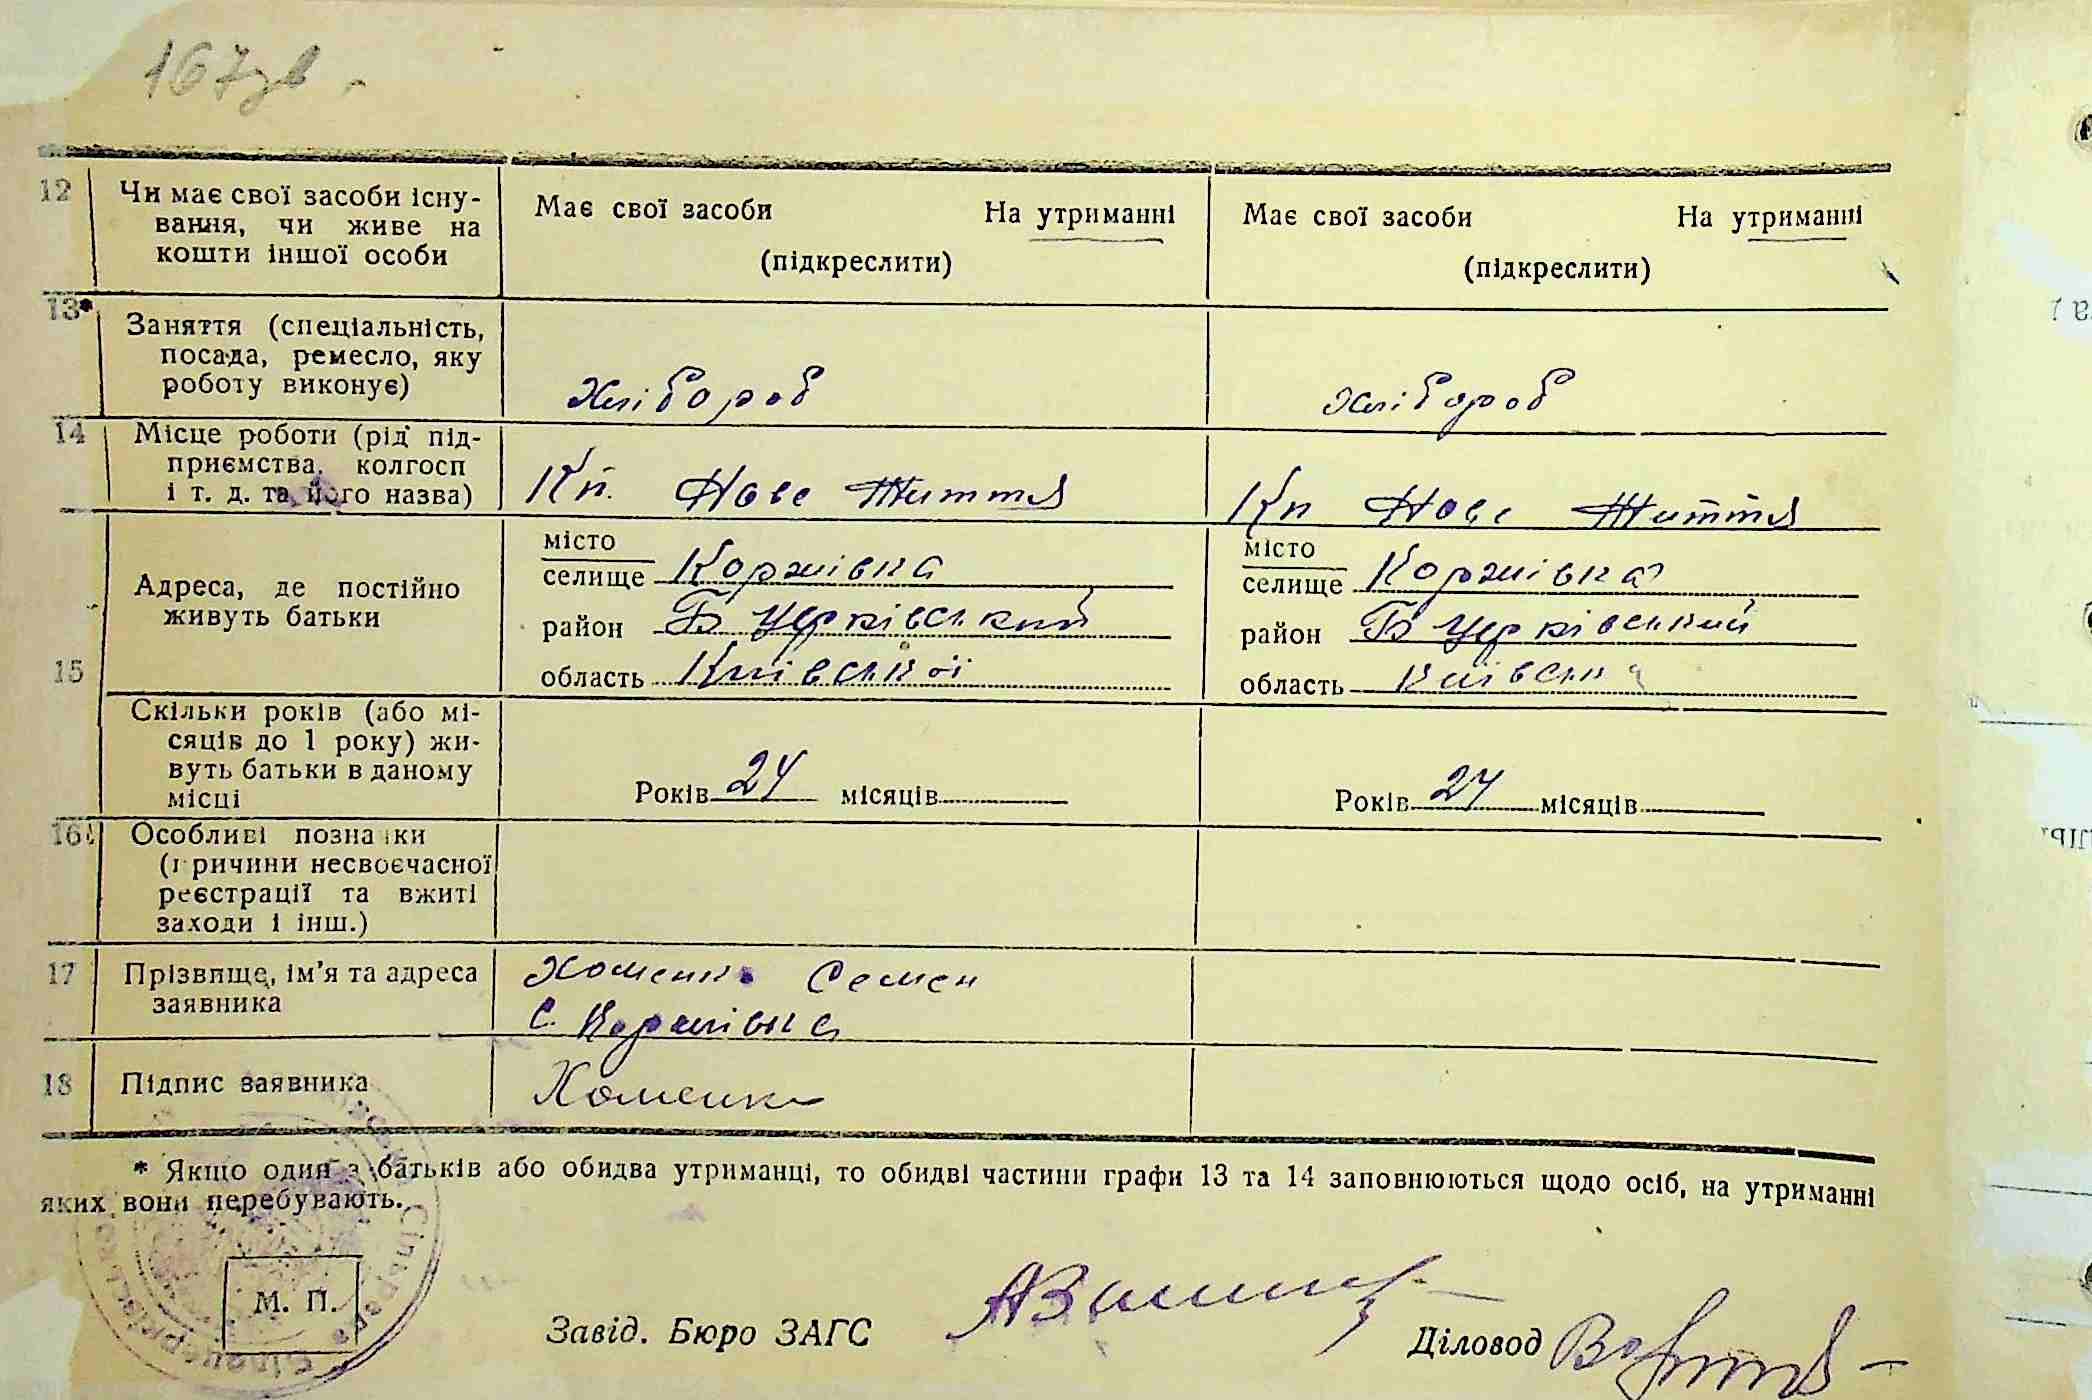 167зв.
12 Чи має свої засоби існу-
вання, чи живе на
кошти іншої особи
Має свої засоби На утриманні
(підкреслити)
Має свої засоби На утриманні
(підкреслити)
13* Заняття (спеціальність,
посада, ремесло, яку
роботу виконує)
Хлібороб
хлібороб
14 Місце роботи (рід під-
приємства, колгосп
і т. д. та його назва)
Кп. Нове Життя
Кп Нове Життя
15 Адреса, де постійно
живуть батьки
місто
селище Коржівка
район Б Церківський
область Київської
місто
селище Коржівка
район Б Церківський
область Київськ
Скільки років (або мі-
сяців до 1 року) жи-
вуть батьки в даному
місці
Років 24 місяців
Років 24 місяців
16 Особливі познаки
(причини несвоєчасної
реєстрації та вжиті
заходи і інш.)
17 Прізвище, ім'я та адреса
заявника
Хоменко Семен
С. Коржівка
18 Підпис заявника
Хоменко
* Якщо один з батьків або обидва утриманці, то обидві частини графи 13 та 14 заповнюються щодо осіб, на утриманні
яких вони перебувають.
М. П.
Завід. Бюро ЗАГС
Діловод